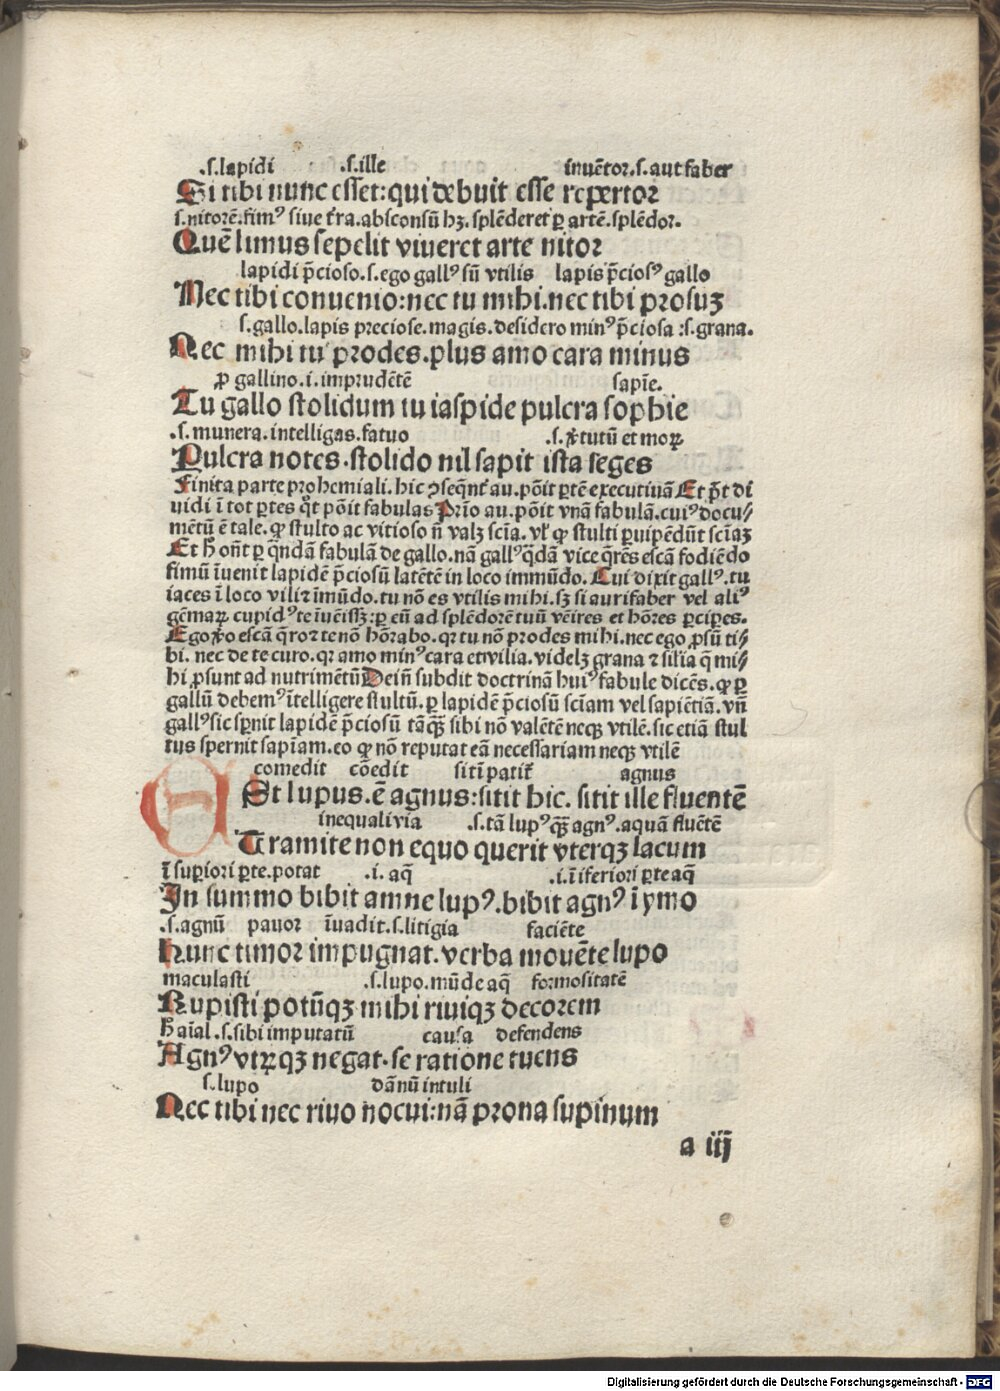 .s.lapidi .s.ille inuētor.s.aut faber
Si tibi nunc esset: qui debuit esse repertor
s.nitorē.fimꝰ siue t̄ra.absconsū hꝫ.splēderet ꝑ artē.splēdor.
Quē limus sepelit viueret arte nitor
lapidi p̄cioso.s.ego gallꝰ sū vtilis lapis p̄ciosꝰ gallo
Nec tibi conuenio: nec tu mihi.nec tibi prosuꝫ
s.gallo.lapis preciose.magis.desidero minꝰ p̄ciosa :s.grana.
Nec mihi tu prodes.plus amo cara minus
ꝓ gallino.i.imprudētē sapiē.
Tu gallo stolidum tu iaspide pulcra sophie
.s.munera.intelligas.fatuo .s.v̄tutū et moꝝ
Pulcra notes.stolido nil sapit ista seges
Finita parte prohemiali.hic ↄseqnt̄ au.pōit ꝑtē executiuā Et p̄t di
uidi ī tot ꝑtes qͦt pōit fabulas Primo au.pōit vnā fabulā.cuiꝰ docu⸗
mētū ē tale.ꝙ stulto ac vitioso n̄ valꝫ scīa.vl̓ ꝙ stulti ꝑuipēdūt scīaꝫ
Et hͦ oūt ꝑ qͣndā fabulā de gallo.nā gallꝰ qͥdā vice qͣrēs escā fodiēdo
fimū īuenit lapidē p̄ciosū latētē in loco immūdo.Cui dixit gallꝰ.tu
iaces ī loco vili ⁊ imūdo.tu nō es vtilis mihi.sꝫ si aurifaber vel aliꝰ
gēmaꝝ cupidꝰ te īueissꝫ:ꝑ eū ad splēdorē tuū veīres et hōres ꝑciꝑes.
Ego v̄o escā qͣro ⁊ te nō hōrabo.qꝛ tu nō prodes mihi.nec ego ꝓsū ti⸗
bi.nec de te curo.qꝛ amo minꝰ cara et vilia.videlꝫ grana ⁊ silīa q̄ mi⸗
hi ꝓsunt ad nutrimētū Dein̄ subdit doctrinā huiꝰ fabule dicēs.ꝙ ꝑ
gallū debemꝰ ītelligere stultū.ꝑ lapidē p̄ciosū sciam vel sapiētiā.vn̄
gallꝰ sic sꝑnit lapidē p̄ciosū tāqͣꝫ sibi nō valētē neqꝫ vtilē.sic etiā stul
tus spernit sapiam.eo ꝙ nō reputat eā necessariam neqꝫ vtilē
comedit cōedit sitī patit̄ agnus
ESt lupus.ē agnus: sitit hic.sitit ille fluentē
inequali via .s.tā lupꝰ qͣꝫ agnꝰ.aquā fluētē
Tramite non equo querit vterqꝫ lacum
ī suꝑiori ꝑte.potat .i.aq̄ .i.ī iferiori ꝑte aq̄
In summo bibit amne lupꝰ.bibit agnꝰ ī ymo
.s.agnū pauor īuadit.s.litigia faciēte
Hunc timor impugnat.verba mouēte lupo
maculasti .s.lupo.mūde aq̄ formositatē
Rupisti potūqꝫ mihi riuiqꝫ decorem
hͦ aīal.s.sibi imputatū causa defendens
Agnꝰ vtrūqꝫ negat.se ratione tuens
s.lupo dānū intuli
Nec tibi nec riuo nocui: nā prona supinum
a iij
Digitalisierung gefördert durch die Deutsche Forschungsgemeinschaft - DFG